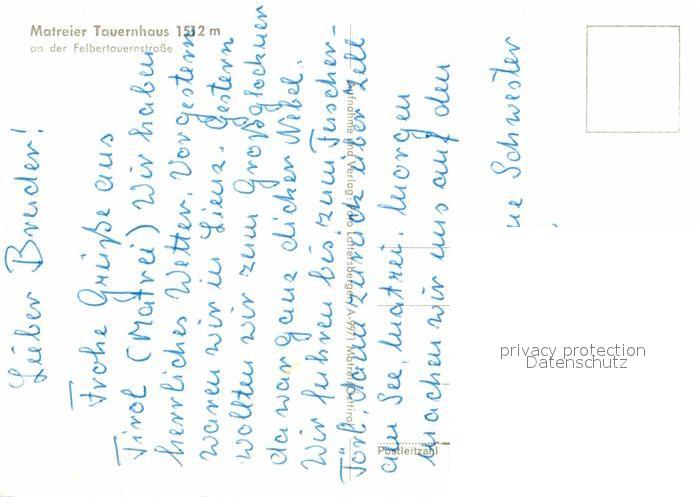 Matreier Tauernhaus 1512 m
an der Felbertauernstraße
Lieber Bruder!
Frohe Grüße aus
Tirol (Matrei) Wir haben
herrliches Wetter. Vorgestern
waren wir in Lienz. Gestern
wollten wir zum Großglockner
da war ganz dicker Nebel.
Wir fuhren bis zum Fuscher-
Törl, dann zurück über Zell
am See, Matrei. Morgen
machen wir uns auf den
ne Schwester
Aufnahme und Verlag: Foto A-9971 Matrei, Osttirol
Postleitzahl
privacy protection
Datenschutz